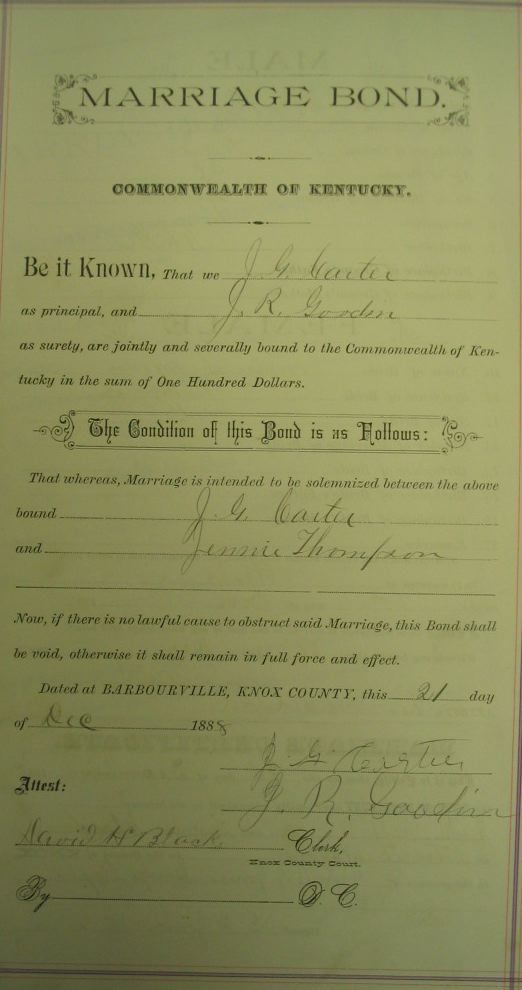 MARRIAGE BOND.
COMMONWEALTH OF KENTUCKY.
Be it Known, That we J. G. Carter
as principal, and J. R. Goodin
as surety, are jointly and severally bound to the Commonwealth of Ken-
tucky in the sum of One Hundred Dollars.
The Condition of this Bond is as Follows:
That whereas, Marriage is intended to be solemnized between the above
bound J. G. Carter
and Jennie Thompson
Now, if there is no lawful cause to obstruct said Marriage, this Bond shall
be void, otherwise it shall remain in full force and effect.
Dated at BARBOURVILLE, KNOX COUNTY, this 21 day
of Dec 1888
J G Carter
Attest:
J. R. Goodin
David H Black Clerk,
Knox County Court.
By D. C.